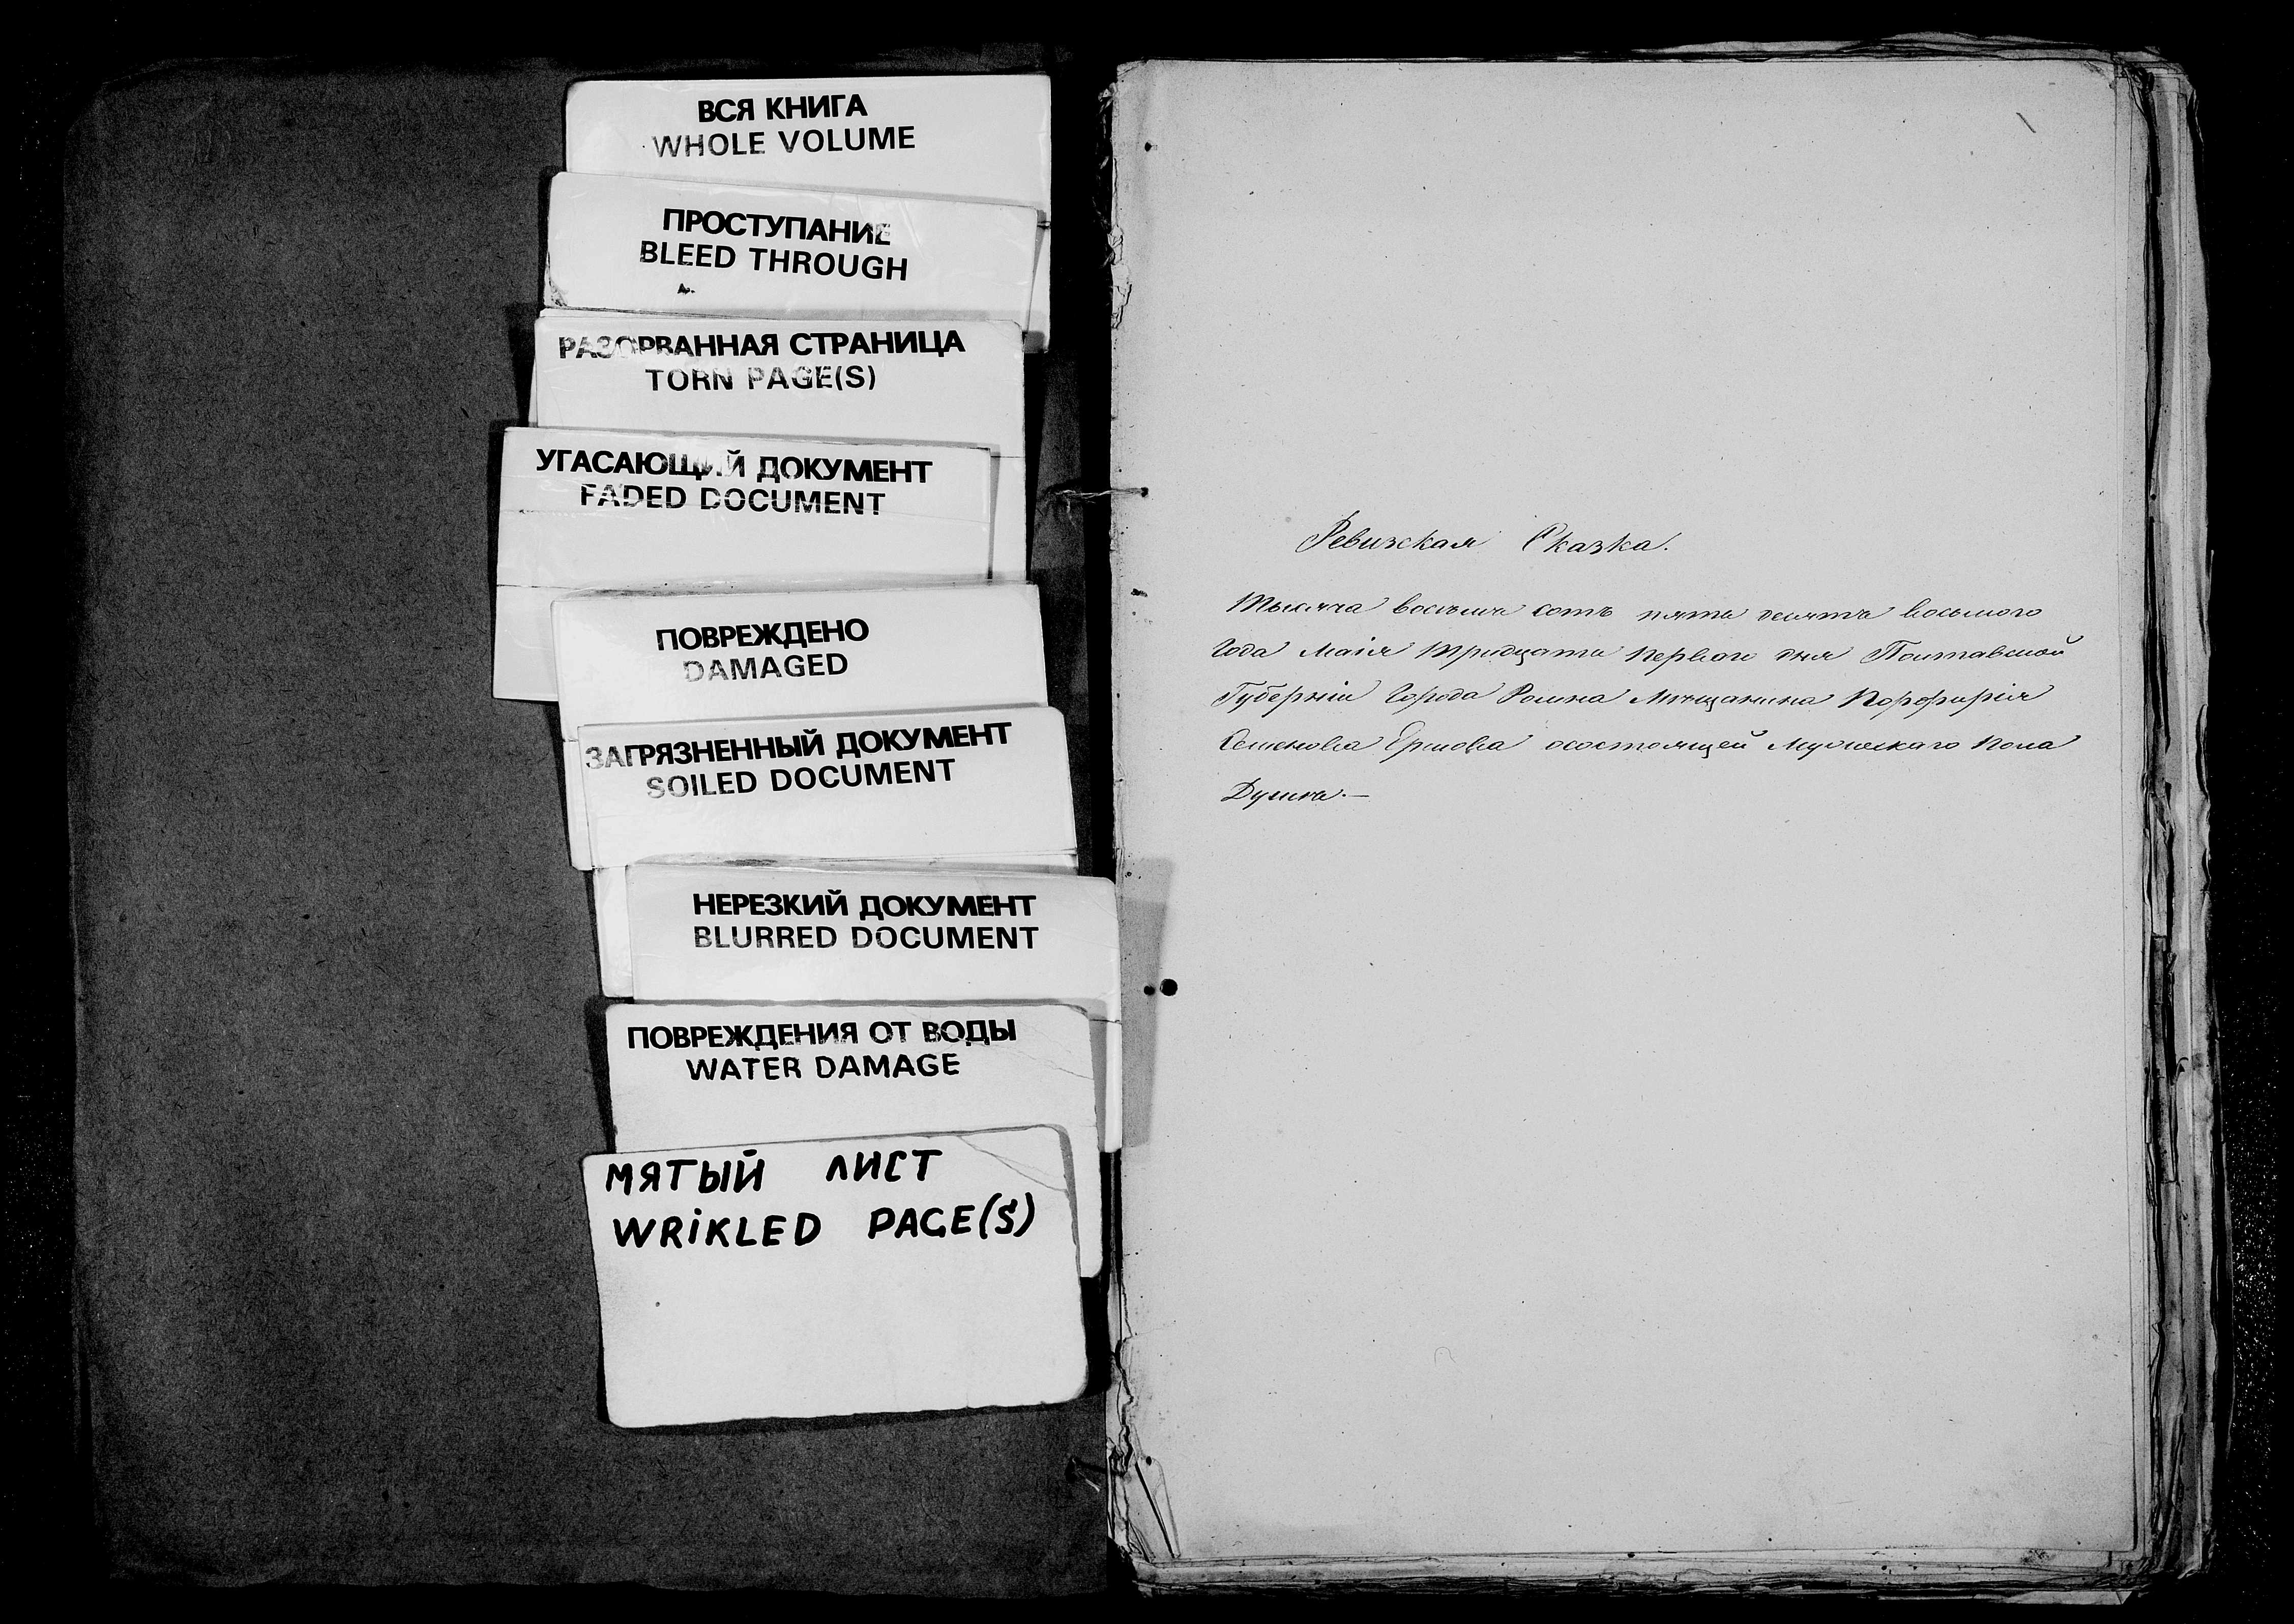 ВСЯ КНИГА
WHOLE VOLUME
ПРОСТУПАНИЕ
BLEED THROUGH
РАЗОРВАННАЯ СТРАНИЦА
TORN PAGE(S)
УГАСАЮЩИЙ ДОКУМЕНТ
FADED DOCUMENT
ПОВРЕЖДЕНО
DAMAGED
ЗАГРЯЗНЕННЫЙ ДОКУМЕНТ
SOILED DOCUMENT
НЕРЕЗКИЙ ДОКУМЕНТ
BLURRED DOCUMENT
ПОВРЕЖДЕНИЯ ОТ ВОДЫ
WATER DAMAGE
МЯТЫЙ ЛИСТ
WRIKLED PAGE(S)
Ревизская Сказка.
Тысяча восемь сотъ пять десять восьмого
Года Маія Тридцать Первого дня Полтавской
Губерніи Города Ромна Мещанина Порфирія
Семенова Ершова осостоящей Мужескаго Пола
Душъ.—